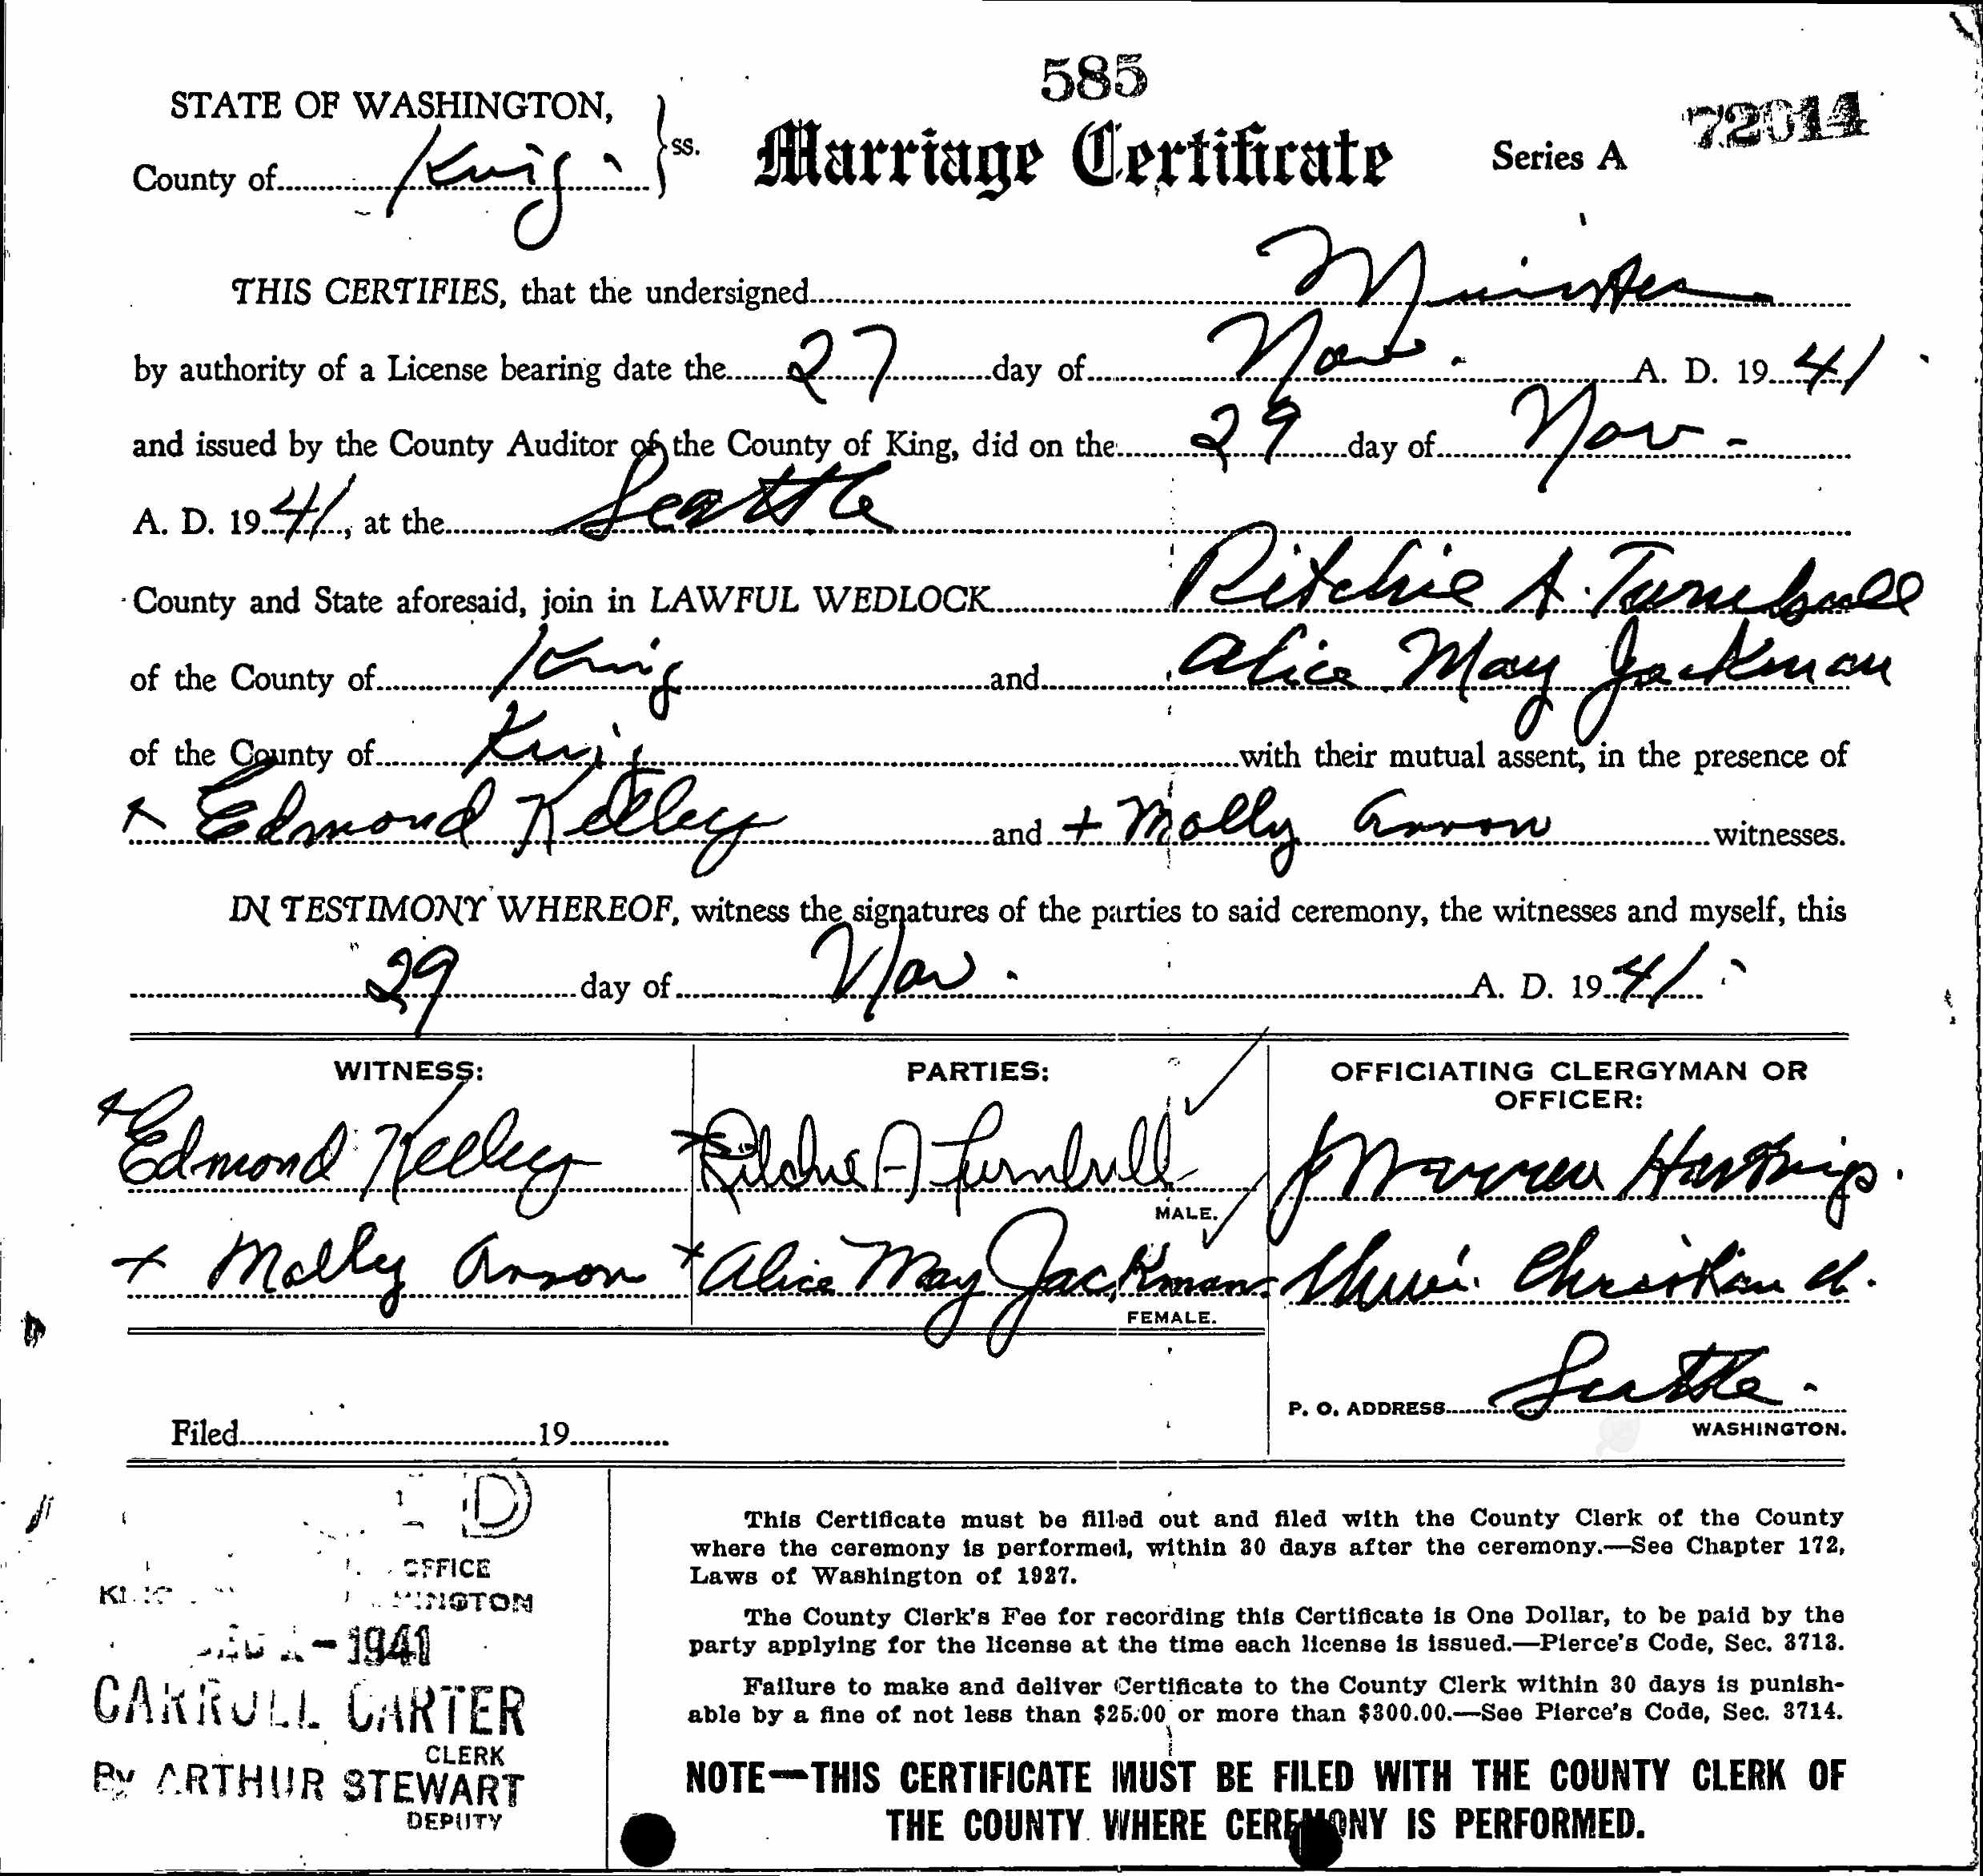 585
STATE OF WASHINGTON,
County of King ss.
Marriage Certificate
Series A 72014
THIS CERTIFIES, that the undersigned Minister
by authority of a License bearing date the 27 day of Nov. A. D. 1941
and issued by the County Auditor of the County of King, did on the 29 day of Nov-
A. D. 1941, at the Seattle
County and State aforesaid, join in LAWFUL WEDLOCK Ritchie A. Turnbull
of the County of King and Alice May Jackman
of the County of King with their mutual assent, in the presence of
x Edmond Kelley and + Molly Anson witnesses.
IN TESTIMONY WHEREOF, witness the signatures of the parties to said ceremony, the witnesses and myself, this
29 day of Nov. A. D. 1941
WITNESS: PARTIES: OFFICIATING CLERGYMAN OR
OFFICER:
x Edmond Kelley x Ritchie A Turnbull J Warren Hastings.
MALE.
x Molly Anson x Alice May Jackman Christian
FEMALE.
P. O. ADDRESS Seattle.
WASHINGTON.
Filed 19
D
OFFICE
1941
CARROLL CARTER
CLERK
By ARTHUR STEWART
DEPUTY
This Certificate must be filled out and filed with the County Clerk of the County
where the ceremony is performed, within 30 days after the ceremony.—See Chapter 172,
Laws of Washington of 1927.
The County Clerk's Fee for recording this Certificate is One Dollar, to be paid by the
party applying for the license at the time each license is issued.—Pierce's Code, Sec. 3713.
Failure to make and deliver Certificate to the County Clerk within 30 days is punish-
able by a fine of not less than $25.00 or more than $300.00.—See Pierce's Code, Sec. 3714.
NOTE—THIS CERTIFICATE MUST BE FILED WITH THE COUNTY CLERK OF
THE COUNTY WHERE CEREMONY IS PERFORMED.